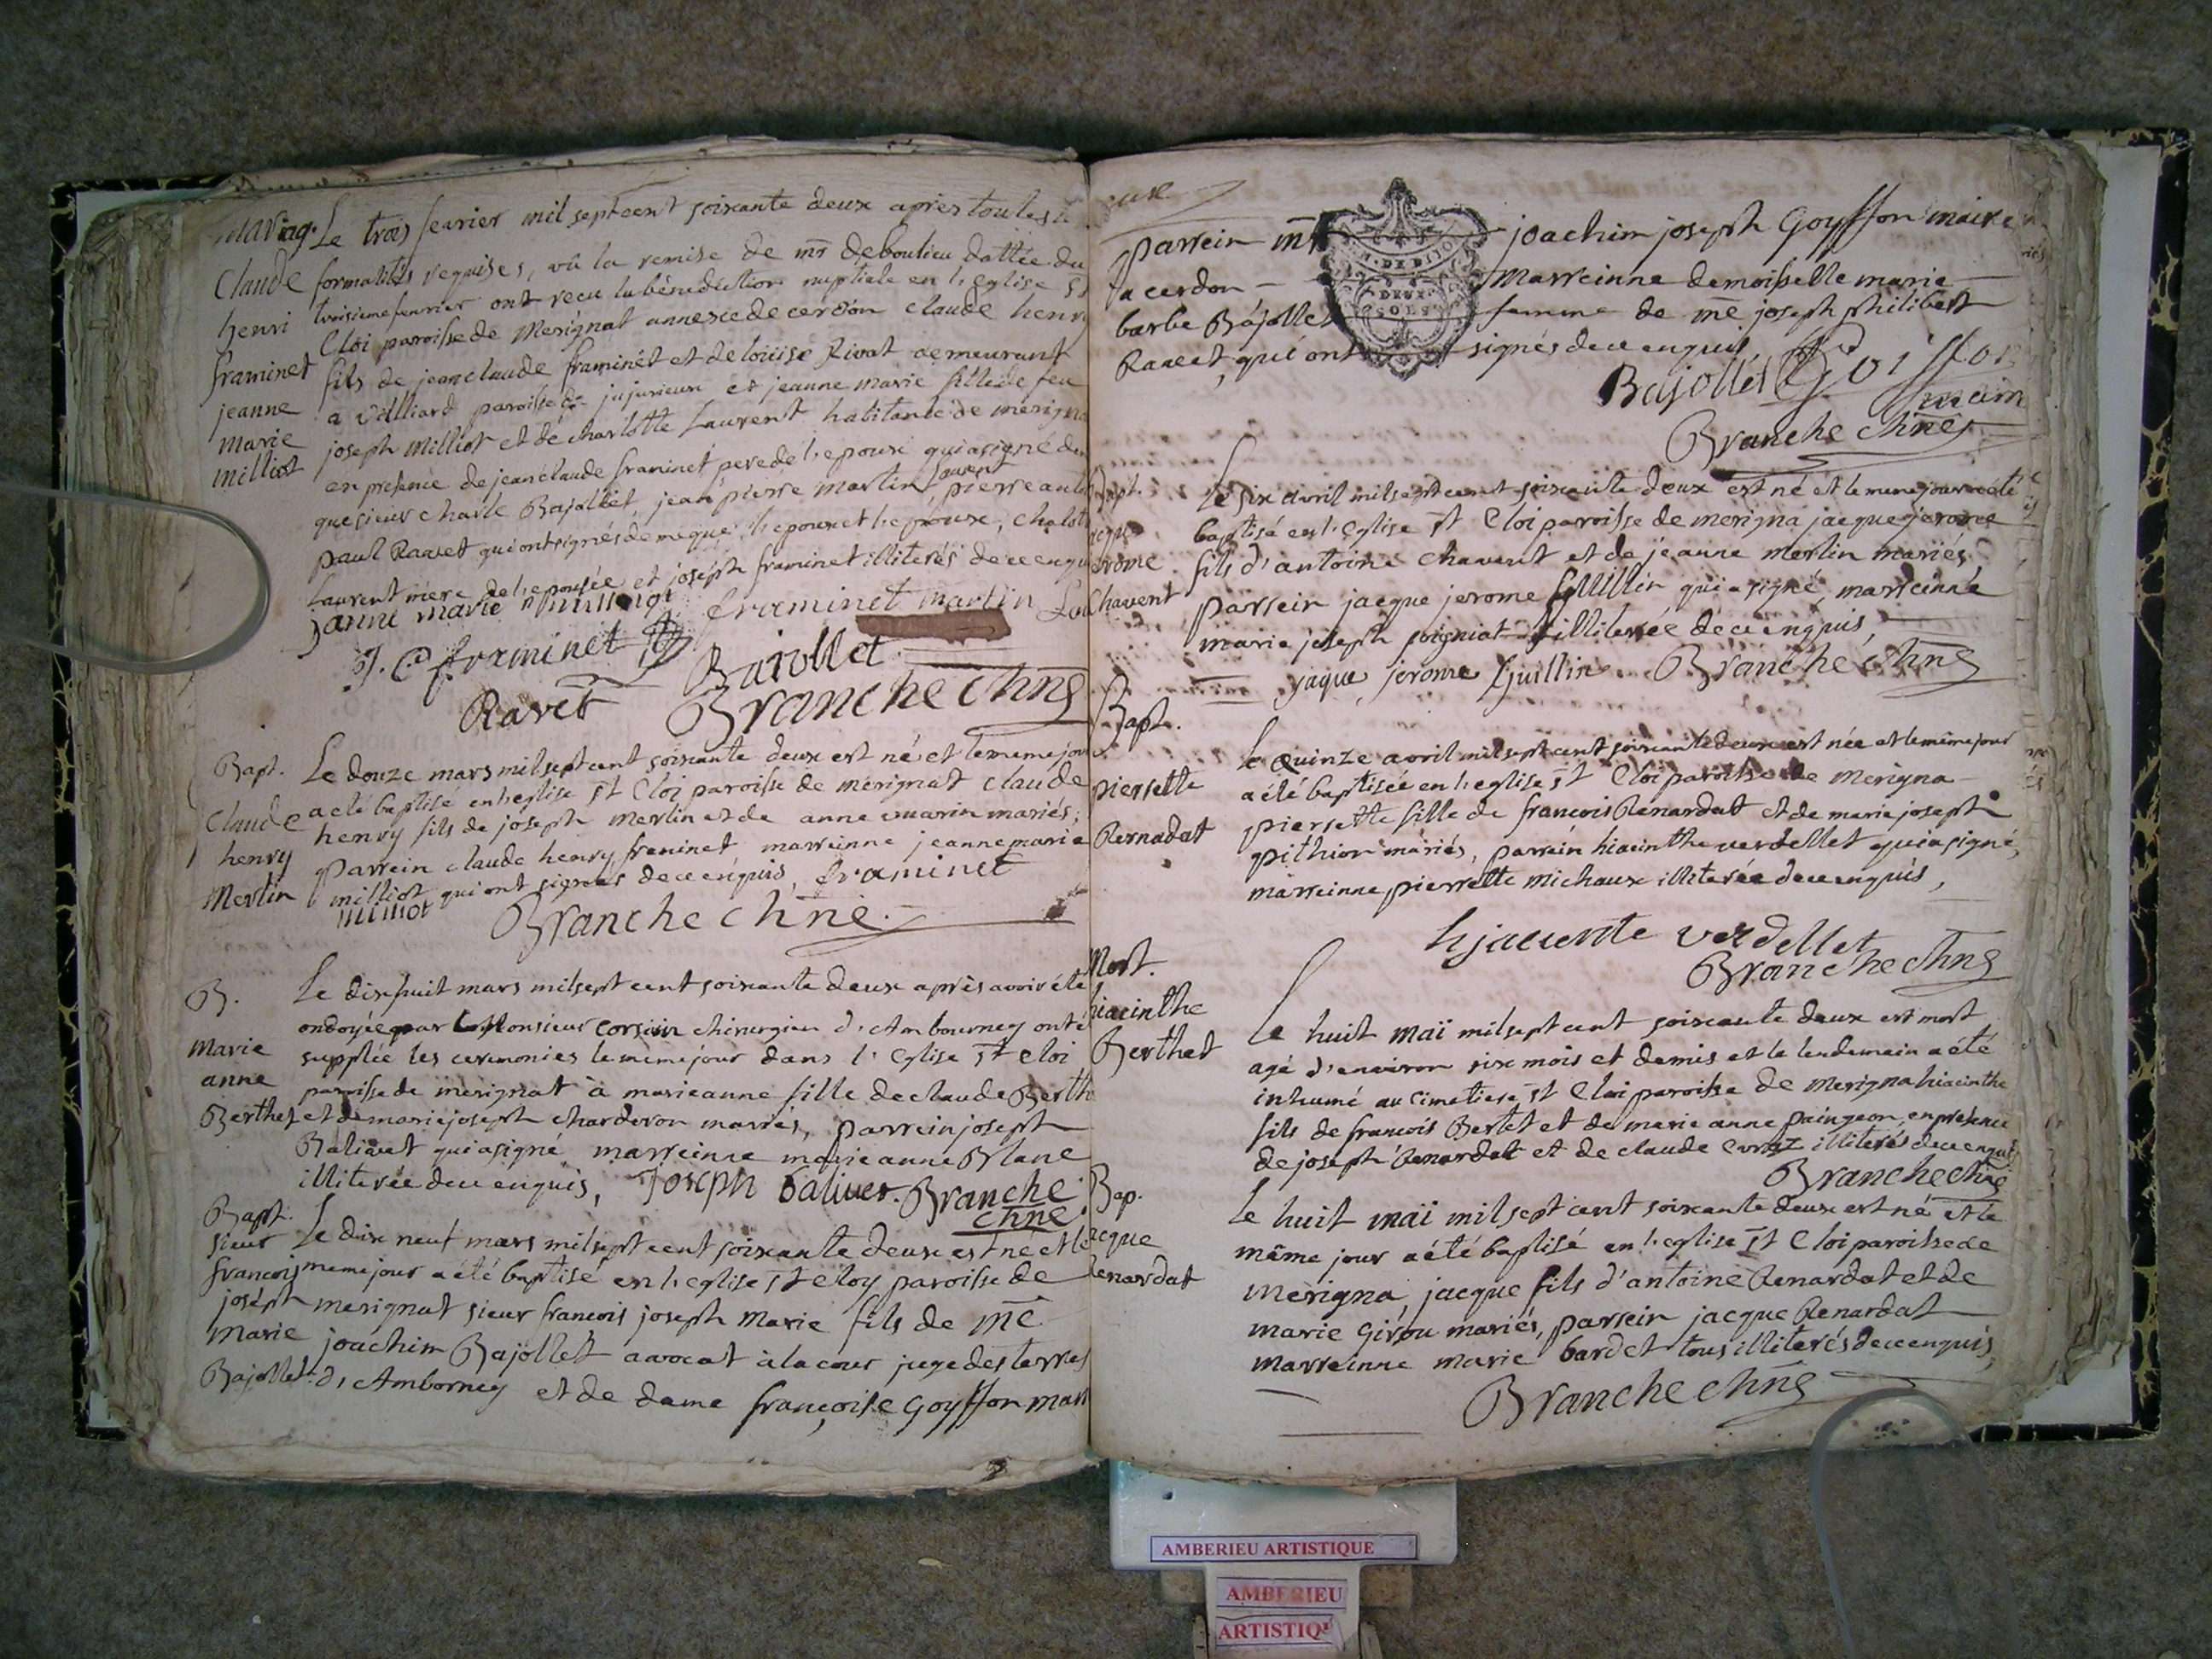 mariag. Le trois fevrier mil sept cent soixante deux apres toutes
Claude formalités requises, vû la remise de mr deboulieu dattée du
henri troisieme fevrier ont recu la bénédiction nuptiale en l'eglise st
framinet Cloi paroisse de Merignat annexe de cerdon claude henri
fils de jean claude framinét et de loüise Rivat demeurant
jeanne a villiard paroisse de jujurieux et jeanne marie fille de feu
marie joseph Milliot et de charlotte Laurent habitante de merigna
milliot en presence de jean claude framinet pere de l'epoux qui a signé de
que sieur charle Bajollet, jean pierre martin, pierre
paul Ravet qui ont signés de meque l'epoux et l'epouse,
Laurent mere de l'epousée et joseph framinet illiterés de ce enquis
janne marie milliot framinet martin
J. C. framinet Bajollet
Ravet Branche chne
Bapt. Le douze mars mil sept cent soixante deux est né et le meme jour
Claude a eté baptisé en l'eglise st Cloi paroisse de merignat claude
henry henry fils de joseph merlin et de anne marin mariés,
Merlin parrein claude henry framinet marreinne jeanne marie
milliot qui ont signés de ce enquis, framinet
milliot Branche chne
B. Le dix huit mars mil sept cent soixante deux après avoir été
ondoyée par Monsieur corsin chirurgien d'Ambourney ont été
marie supplée les ceremonies le meme jour dans l'Eglise st cloi
anne paroisse de merignat à marie anne fille de claude Berth
Berthet et de marie joseph charderon mariés, parrein joseph
Balivet qui a signé marreinne marie anne Blanc
illiterée de ce enquis, Joseph balivet. Branche
chne
Bapt.
sieur Le dix neuf mars mil sept cent soixante deux est né et le
francois meme jour a été baptisé en l'eglise st eloy paroisse de
joséph merignat sieur francois joseph Marie fils de me
Marie joachim Bajollet avocat à la cour juge des terres
Bajollet d'Amborney et de dame françoise Goyffon mari
parrein mr joachim joseph Goyffon maire
a cerdon marreinne demoiselle marie
barbe Bajollet femme de me joseph philibert
Ravet, qui ont signés de ce enquis
DE DIJON
DEUX
SOLS
Bajollet Goiffon
maire
Branche chne
Bapt. Le six avril mil sept cent soixante deux est né et le meme jour a eté
jacque baptisé en l'Eglise st Cloi paroisse de merigna jacque jerome
jerome fils d'antoine chavent et de jeanne merlin mariés
chavent parrein jacque jerome Guillin qui a signé, marreinne
marie joseph poigniat illiterée de ce enquis,
jaque jerome Guillin Branche chne
Bapt. Le quinze avril mil sept cent soixante deux est née et le même jour
pierrette a été baptisée en l'eglise st Cloi paroisse de merigna
Rernadat pierrette fille de francois Renardat et de marie joseph
pithion mariés, parrein hiacinthe verdellet qui a signé,
marreinne pierrette michaux illiterée de ce enquis,
hjacuente verdellet
Branche chne
Mort.
hiacinthe
Berthet Le huit maï mil sept cent soixante deux est mort
agé d'environ six mois et demis et le lendemain a été
inhumé au cimetiere st Cloi paroisse de merigna hiacinthe
fils de francois Bertet et de marie anne paingeon, en presence
de joseph Renardat et de claude evroz illiterés de ce enquis
Branche chne
Bap. Le huit maï mil sept cent soixante deux est né et le
jacque même jour a été baptisé en l'eglise st Cloi paroisse de
Renardat merigna, jacque fils d'antoine Renardat et de
marie Girou mariés, parrein jacque Renardat
marreinne marie bardet tous illiterés de ce enquis,
Branche chne
AMBERIEU ARTISTIQUE
AMBERIEU
ARTISTIQ